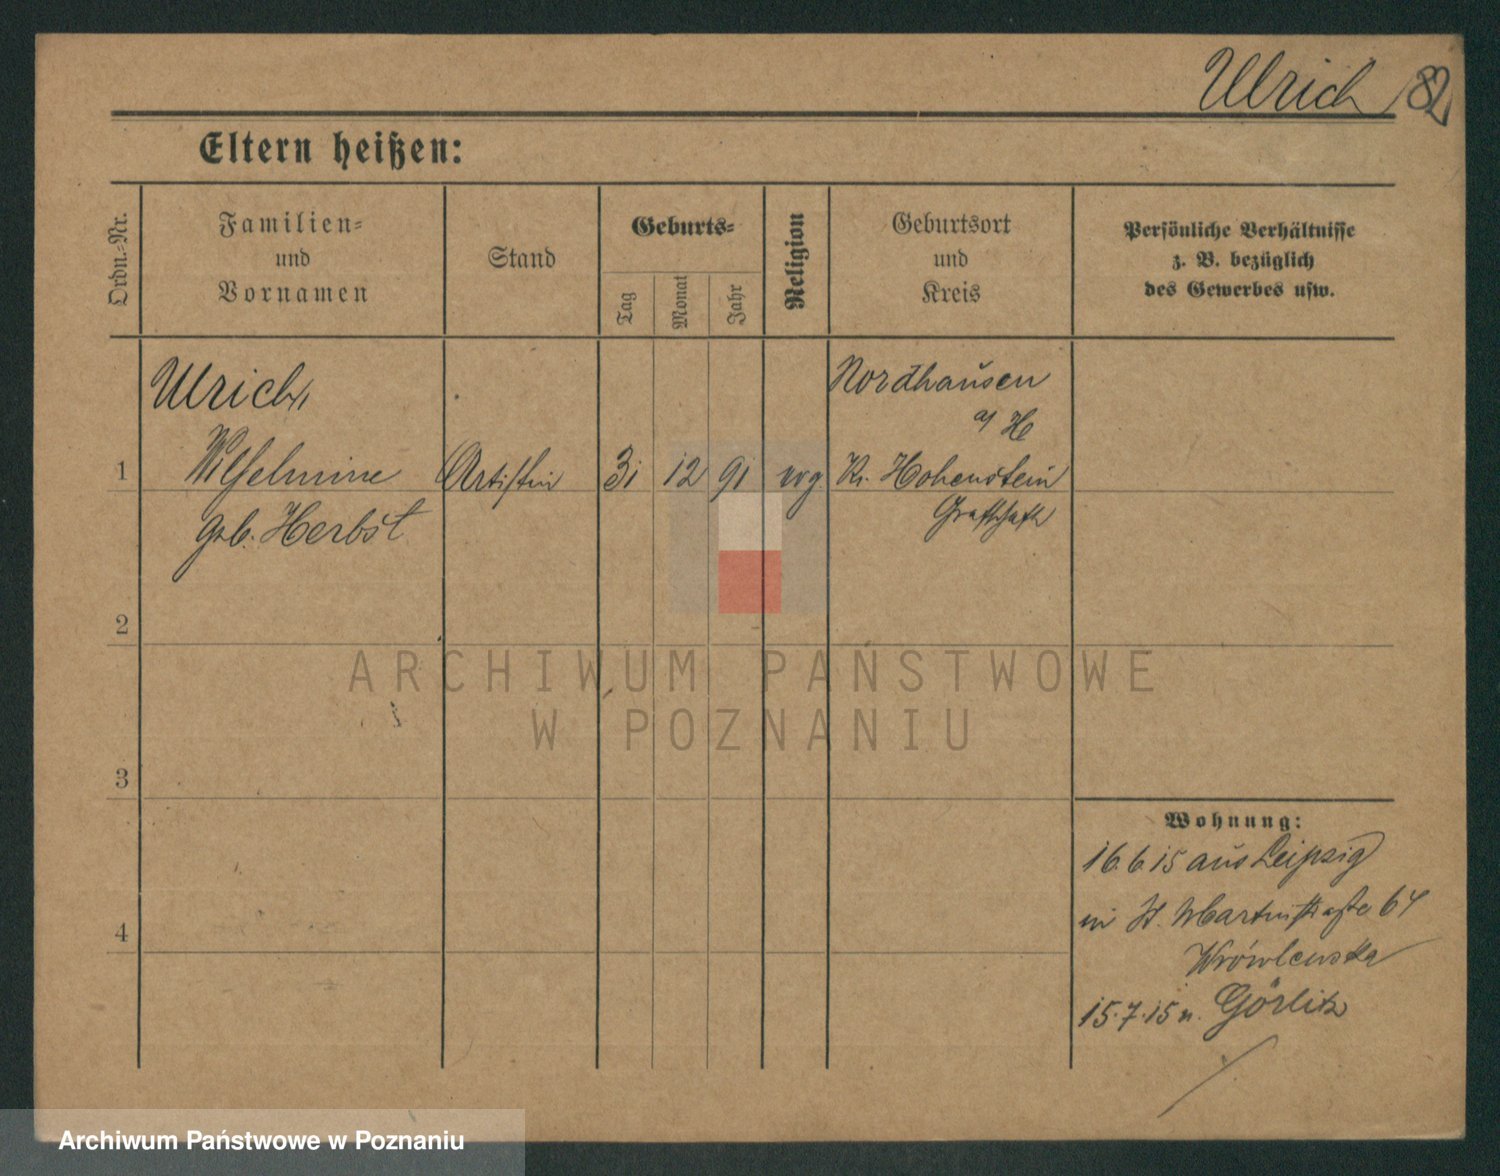 Ulrich 82
Eltern heißen:
Ordn.-Nr.
Familien-
und
Vornamen
Stand
Geburts-
Tag
Monat
Jahr
Religion
Geburtsort
und
Kreis
Persönliche Verhältnisse
z. B. bezüglich
des Gewerbes usw.
Ulrich,
1 Wilhelmine Artistin 31 12 91 evg.
geb. Herbst
Nordhausen
a/ H
Kr. Hohenstein
Grafschaft
2
3
4
Wohnung:
16.6.15 aus Leipzig
in St. Martinstraße 64
15.7.15 n. Görlitz
ARCHIWUM PAŃSTWOWE
W POZNANIU
Archiwum Państwowe w Poznaniu